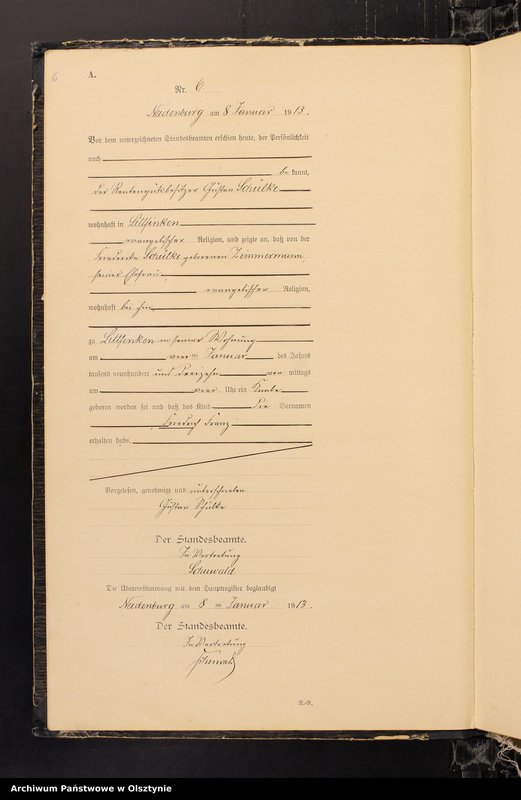 6
A.
Nr. 6
Neidenburg am 8 Januar 1913.
Vor dem unterzeichneten Standesbeamten erschien heute, der Persönlichkeit
nach
be kannt,
der Rentengutsbesitzer Gustav Schülke
wohnhaft in Littfinken
evangelischer Religion, und zeigte an, daß von der
Friederike Schülke geborenen Zimmermann
seiner Ehefrau
evangelischer Religion,
wohnhaft bei ihm
zu Littfinken in seiner Wohnung
am vierten Januar des Jahres
tausend neunhundert und dreizehn vor mittags
um vier Uhr ein Knabe
geboren worden sei und daß das Kind die Vornamen
Friedrich Franz
erhalten habe.
Vorgelesen, genehmigt und unterschrieben
Gustav Schülke
Der Standesbeamte.
In Vertretung
Die Übereinstimmung mit dem Hauptregister beglaubigt
Neidenburg am 8 ten Januar 1913.
Der Standesbeamte.
In Vertretung
Archiwum Państwowe w Olsztynie